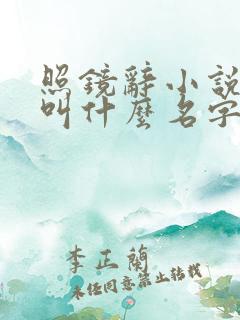 照鏡辭小說
叫什麼名字
李正蘭
未經同意禁止轉載